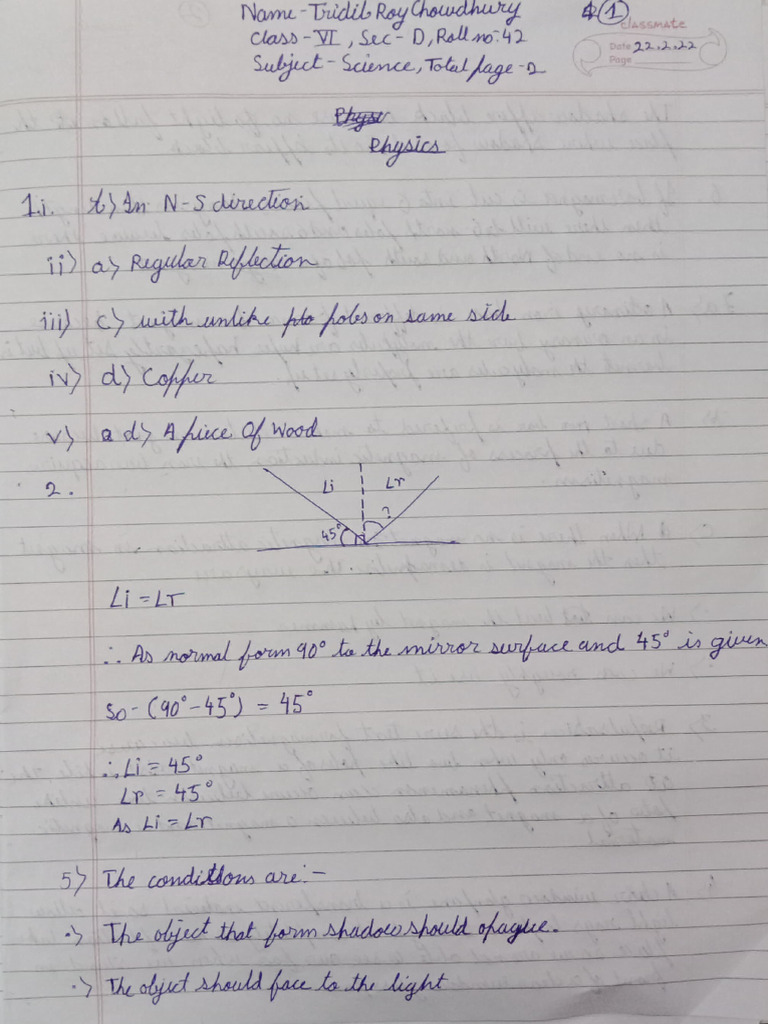 Name-Tridib Roy Chowdhury
1
classmate
Class-VI, Sec-D, Roll no:-42
Date 22.2.22
Subject-Science, Total page-2
Page
Physics
1.i. b) In N-S direction
ii) a) Regular Reflection
iii) c) with unlike poles on same side
iv) d) Copper
v) d) A piece Of Wood
2.
Li Lr
45° ?
Li = Lr
∴ As normal form 90° to the mirror surface and 45° is given
So - (90°-45°) = 45°
∴ Li = 45°
Lr = 45°
As Li = Lr
5) The conditions are:-
•) The object that form shadow should opaque.
•) The object should face to the light